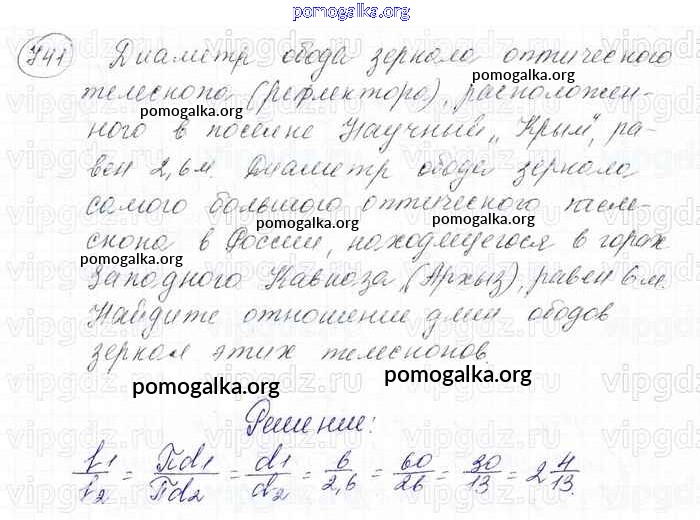 pomogalka.org
741 Диаметр обода зеркала оптического
телескопа (рефлектора), расположен-
ного в поселке Научный, Крым, ра-
вен 2,6 м. Диаметр обода зеркала
самого большого оптического теле-
скопа в России, находящегося в горах
Западного Кавказа (Архыз), равен 6 м.
Найдите отношение длин ободов
зеркал этих телескопов.
Решение:
l1/l2 = Пd1/Пd2 = d1/d2 = 6/2,6 = 60/26 = 30/13 = 2 4/13.
pomogalka.org
pomogalka.org
pomogalka.org
pomogalka.org
pomogalka.org
pomogalka.org
pomogalka.org